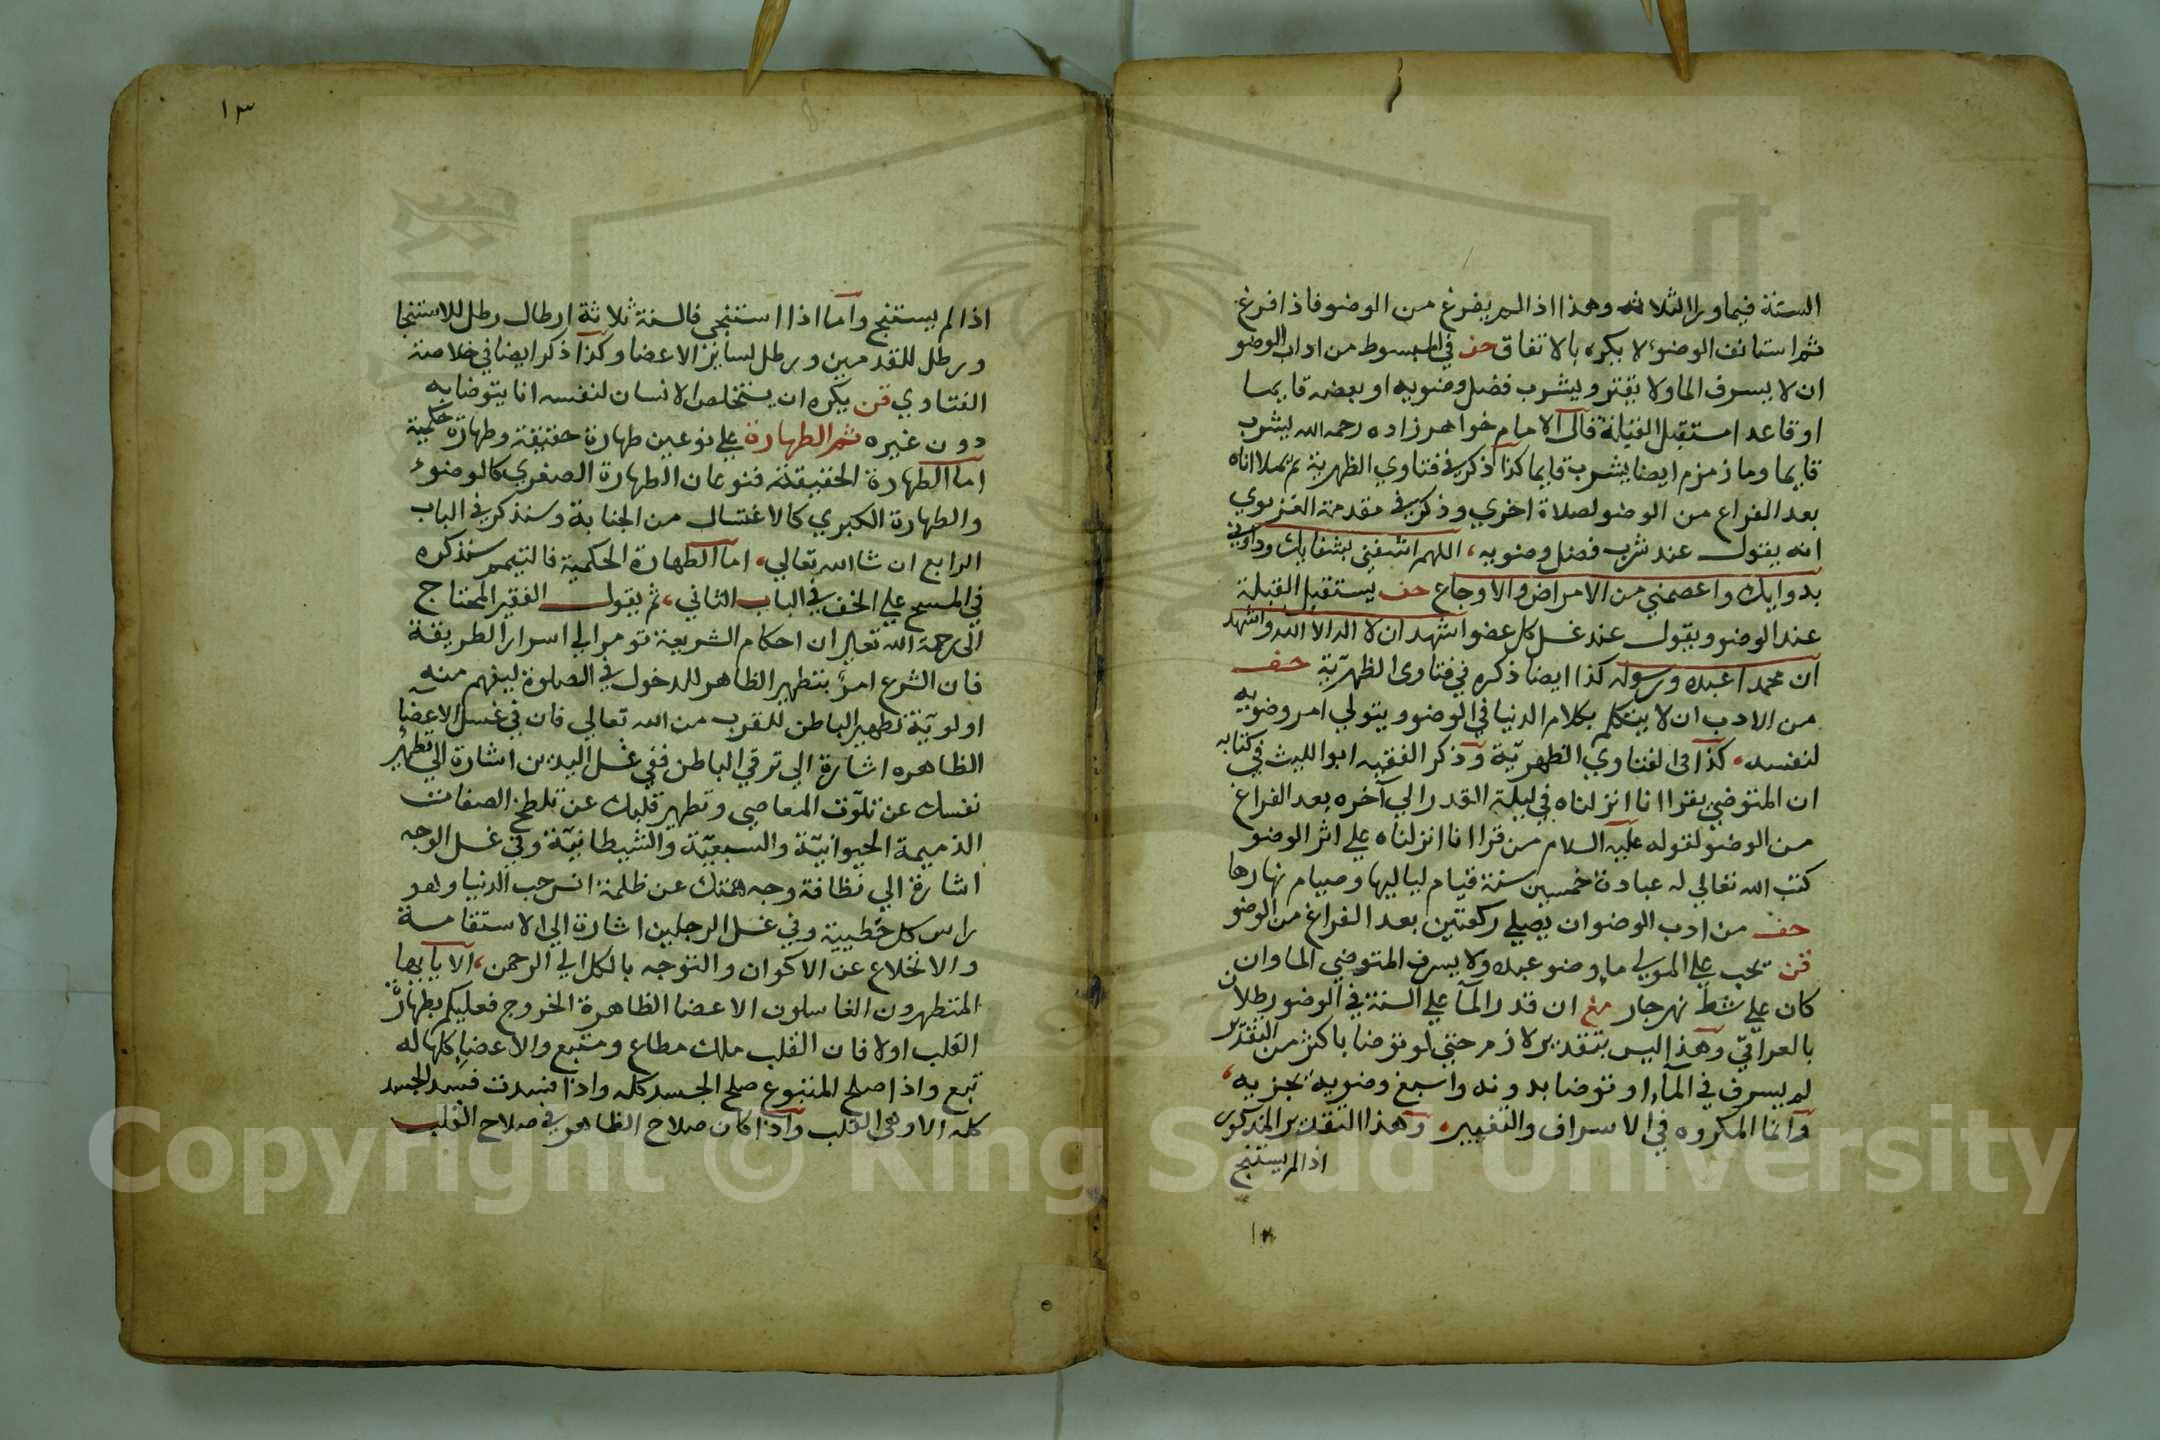 السنة فيما ورا الثلاثه وهذا اذا لم يفرغ من الوضو فاذا فرغ
ثم استانف الوضوء لا يكره بالاتفاق حف في المبسوط من اداب الوضو
ان لا يسرف الما ولا يقتر ويشرب فضل وضويه او بعضه قايما
او قاعدا مستقبل القبلة قال الامام خواهر زاده رحمه الله يشرب
قايما وما زمزم ايضا يشربه قايما كذا ذكر في فتاوي الظهرية ثم يملا اناه
بعد الفراغ من الوضو لصلاة اخري وذكر في مقدمة الغزنوي
انه يقول عند شرب فضل وضويه، اللهم اشفني بشفايك وداوني
بدوايك واعصمني من الامراض والاوجاع حف يستقبل القبلة
عند الوضو ويقول عند غسل كل عضو اشهد ان لا اله الا الله واشهد
ان محمدا عبده ورسوله كذا ايضا ذكره في فتاوى الظهرية حف
من الادب ان لا يتكلم بكلام الدنيا في الوضو ويتولي امر وضويه
لنفسه. كذا في الفتاوي الظهرية وذكر الفقيه ابو الليث في كتابه
ان المتوضي يقرا انا انزلناه في ليلة القدر الي آخره بعد الفراغ
من الوضو لقوله عليه السلام من قرا انا انزلناه علي اثر الوضو
كتب الله تعالي له عبادة خمسين سنة قيام لياليها وصيام نهارها
حف من ادب الوضو ان يصلي ركعتين بعد الفراغ من الوضو
قن يجب علي المولي ما وضو عبده ولا يسرف المتوضي الما وان
كان علي شط نهر جار مغ ان قدر الما علي السنة في الوضو رطلان
بالعراقي وهذا ليس بتقدير لازم حتي لو توضا باكثر من التقدير
لم يسرف في الما او توضا بدونه واسبغ وضويه يجزيه،
وانما المكروه في الاسراف والتقيير. وهذا التقدير المذكور
اذا لم يستنج
١٢
١٣
اذا لم يستنج واما اذا استنجي فالسنة ثلاثة ارطال رطل للاستنجا
ورطل للقدمين ورطل لسايز الاعضا وكذا ذكر ايضا في خلاصة
الفتاوي قن يكره ان يستخلص الانسان لنفسه انا يتوضا به
دون غيره ثم الطهارة علي نوعين طهارة حقيقة وطهارة حكمية
اما الطهارة الحقيقة فنوعان الطهارة الصغري كالوضوء
والطهارة الكبري كالاغتسال من الجنابة وسنذكر في الباب
الرابع ان شا الله تعالي. اما الطهارة الحكمية فالتيمم سنذكره
في المسح علي الخف في الباب الثاني، ثم يقول الفقير المحتاج
الي رحمة الله تعالي ان احكام الشريعة تومر الي اسرار الطريقة
فان الشرع امر بتطهير الظاهر للدخول في الصلوة ليفهم منه
اولوية تطهير الباطن للقرب من الله تعالي فان في غسل الاعضا
الظاهره اشارة الي ترقي الباطن ففي غسل اليدين اشارة الي تطهير
نفسك عن تلوث المعاصي وتطهير قلبك عن تلطخ الصفات
الذميمة الحيوانية والسبعية والشيطانية وفي غسل الوجه
اشارة الي نظافة وجه همتك عن ظلمة انس حب الدنيا وهو
راس كل خطيية وفي غسل الرجلين اشارة الي الاستقامة
والانخلاع عن الاكوان والتوجه بالكل الي الرحمن، الا يا ايها
المتطهرون الغاسلون الاعضا الظاهرة الخروج فعليكم بطهارة
القلب اولا فان القلب ملك مطاع ومتبع والاعضا كلها له
تبع واذا صلح المتبوع صلح الجسد كله واذا فسدت فسد الجسد
كله الا وهي القلب واذا كان صلاح الظاهر في صلاح القلب
Copyright © King Saud University
1957